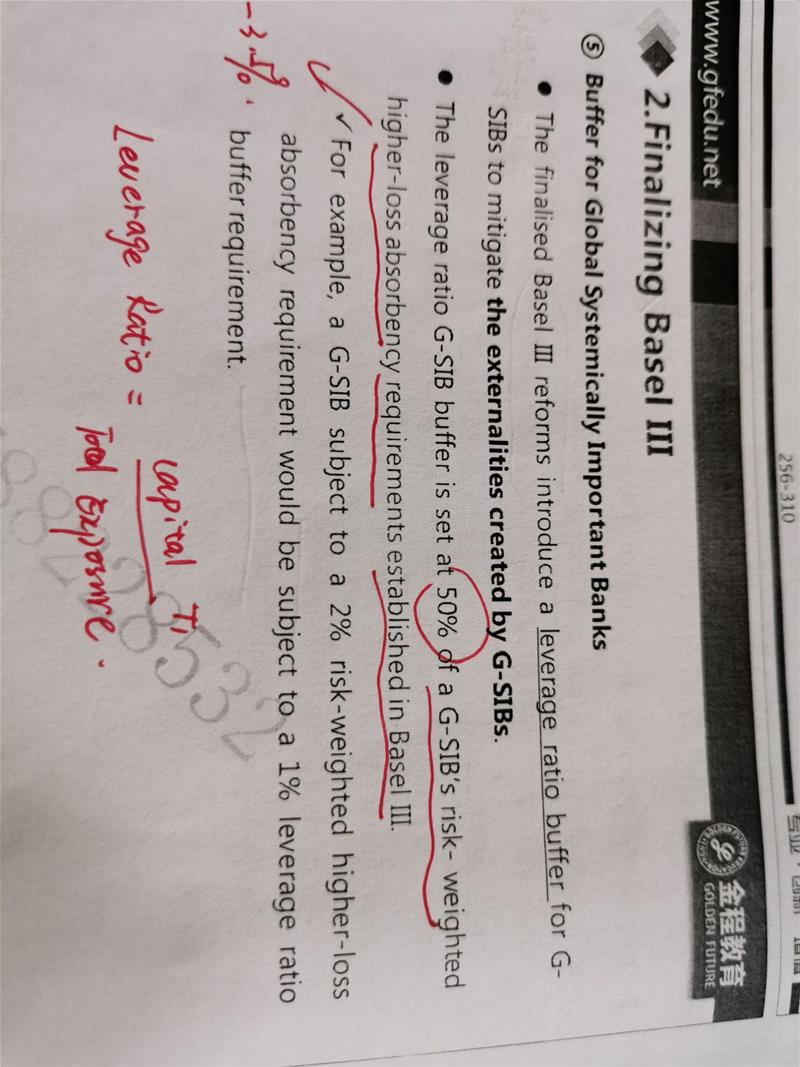 256-310
www.gfedu.net
金程教育
GOLDEN FUTURE
2.Finalizing Basel III
⑤ Buffer for Global Systemically Important Banks
● The finalised Basel III reforms introduce a leverage ratio buffer for G-
SIBs to mitigate the externalities created by G-SIBs.
● The leverage ratio G-SIB buffer is set at 50% of a G-SIB's risk- weighted
higher-loss absorbency requirements established in Basel III.
✓ For example, a G-SIB subject to a 2% risk-weighted higher-loss
absorbency requirement would be subject to a 1% leverage ratio
buffer requirement.
Leverage Ratio = capital T1
Total Exposure.